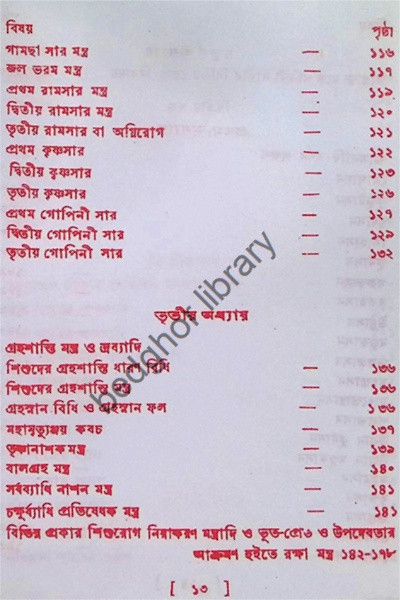 বিষয় পৃষ্ঠা
গামছা সার মন্ত্র — ১১৬
জল ভরম মন্ত্র — ১১৭
প্রথম রামসার মন্ত্র — ১১৯
দ্বিতীয় রামসার মন্ত্র — ১২০
তৃতীয় রামসার বা অগ্নিরোগ — ১২১
প্রথম কৃষ্ণসার — ১২২
দ্বিতীয় কৃষ্ণসার — ১২৩
তৃতীয় কৃষ্ণসার — ১২৬
প্রথম গোপিনী সার — ১২৭
দ্বিতীয় গোপিনী সার — ১২৯
তৃতীয় গোপিনী সার — ১৩২
তৃতীয় অধ্যায়
গ্রহশান্তি মন্ত্র ও দ্রব্যাদি
শিশুদের গ্রহশান্তি ধারণ বিধি — ১৩৬
শিশুদের গ্রহশান্তি মন্ত্র — ১৩৬
গ্রহস্নান বিধি ও গ্রহস্নান ফল — ১৩৬
মহামৃত্যুঞ্জয় কবচ — ১৩৭
তৃষ্ণানাশক মন্ত্র — ১৩৯
বালগ্রহ মন্ত্র — ১৪০
সর্বব্যাধি নাশন মন্ত্র — ১৪১
চক্ষুর্ব্যাধি প্রতিষেধক মন্ত্র — ১৪১
বিভিন্ন প্রকার শিশুরোগ নিরাক্ষরণ মন্ত্রাদি ও ভূত-প্রেত ও উপদেবতার
আক্রমণ হইতে রক্ষা মন্ত্র ১৪২-১৭৮
[ ১৩ ]
bedghor library